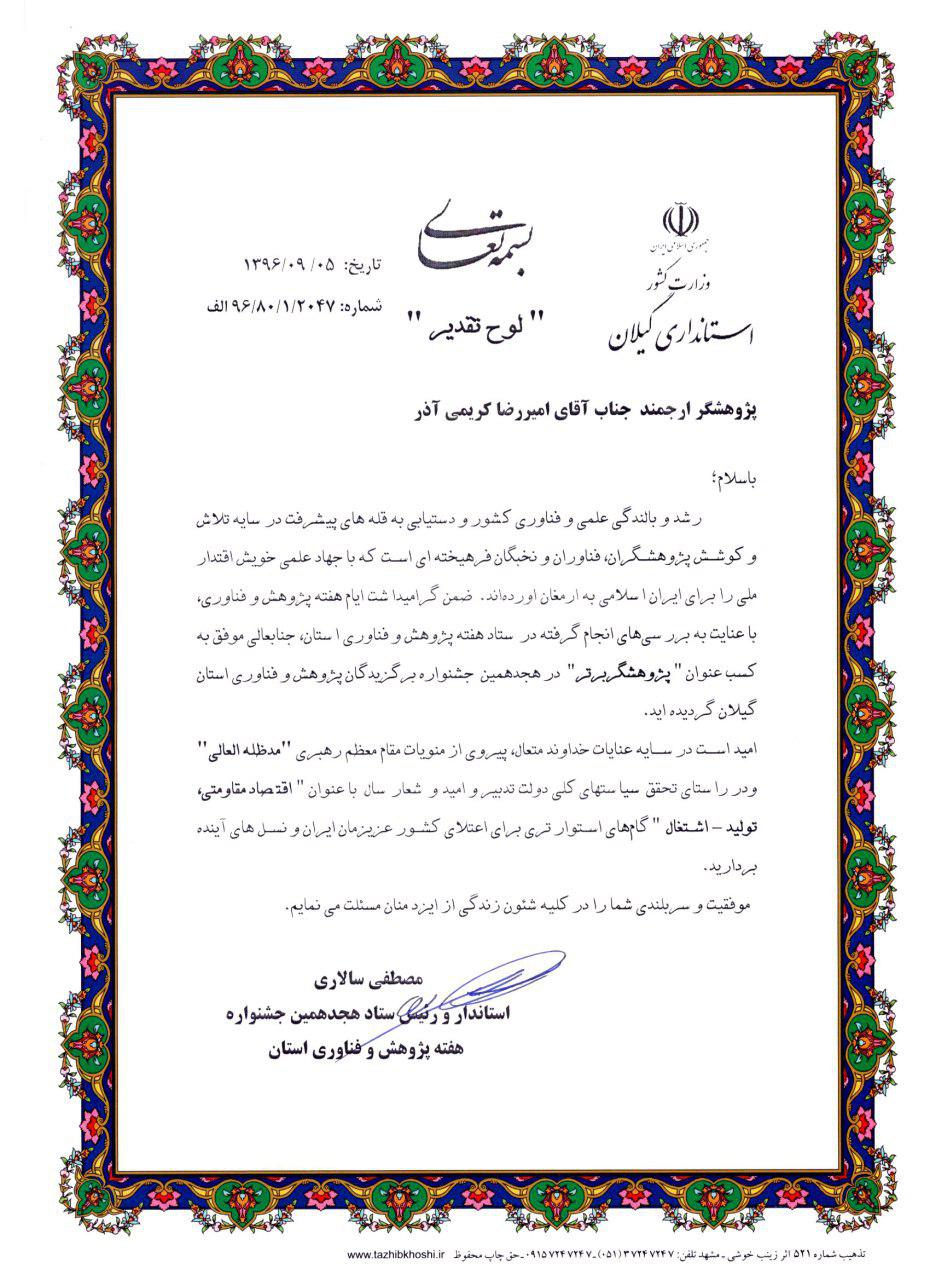 بسمه تعالی
جمهوری اسلامی ایران
وزارت کشور
استانداری گیلان
تاریخ: ۱۳۹۶/۰۹/۰۵
شماره: ۹۶/۸۰/۱/۲۰۴۷ الف
" لوح تقدیر "
پژوهشگر ارجمند جناب آقای امیررضا کریمی آذر
باسلام؛
رشد و بالندگی علمی و فناوری کشور و دستیابی به قله های پیشرفت در سایه تلاش
و کوشش پژوهشگران، فناوران و نخبگان فرهیخته ای است که با جهاد علمی خویش اقتدار
ملی را برای ایران اسلامی به ارمغان اورده‌اند. ضمن گرامیداشت ایام هفته پژوهش و فناوری،
با عنایت به بررسی‌های انجام گرفته در ستاد هفته پژوهش و فناوری استان، جنابعالی موفق به
کسب عنوان " پژوهشگر برتر" در هجدهمین جشنواره برگزیدگان پژوهش و فناوری استان
گیلان گردیده اید.
امید است در سایه عنایات خداوند متعال، پیروی از منویات مقام معظم رهبری "مدظله العالی"
ودر راستای تحقق سیاستهای کلی دولت تدبیر و امید و شعار سال با عنوان " اقتصاد مقاومتی،
تولید – اشتغال " گام‌های استوار تری برای اعتلای کشور عزیزمان ایران و نسل های آینده
بردارید.
موفقیت و سربلندی شما را در کلیه شئون زندگی از ایزد منان مسئلت می نمایم.
مصطفی سالاری
استاندار و رئیس ستاد هجدهمین جشنواره
هفته پژوهش و فناوری استان
تذهیب شماره ۵۲۱ اثر زینب خوشی ـ مشهد تلفن: ۳۷۲۴۷۲۴۷ (۰۵۱) ـ ۰۹۱۵۷۲۴۷۲۴۷ ـ حق چاپ محفوظ www.tazhibkhoshi.ir